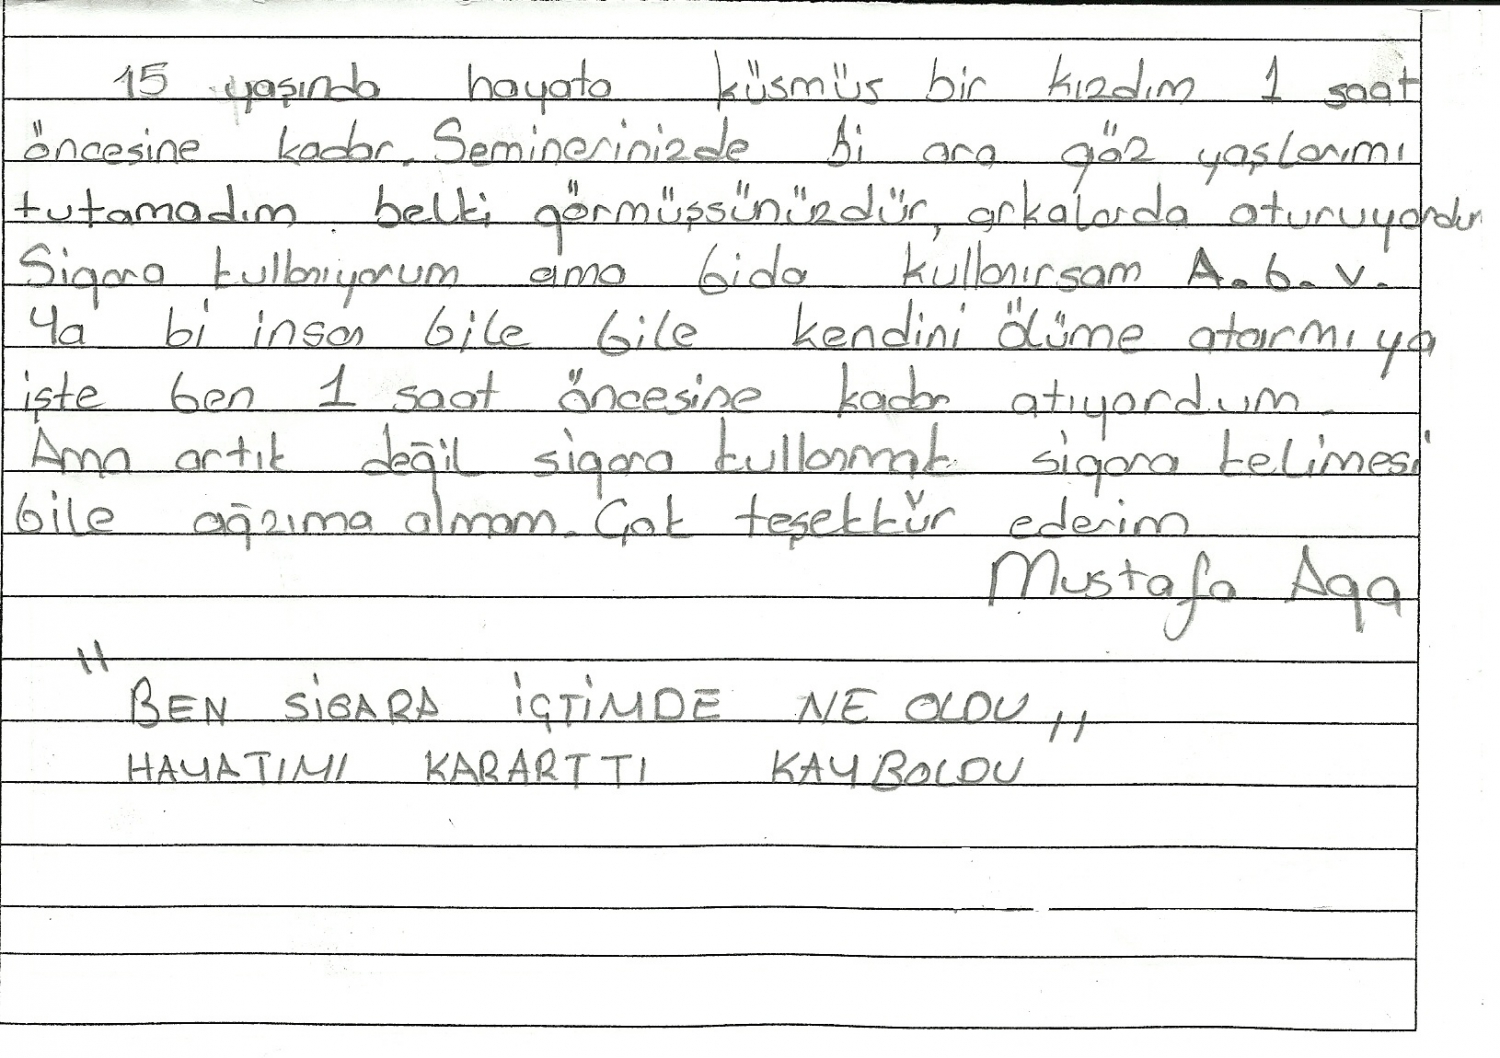 15 yaşında hayata küsmüs bir kızdım 1 saat
öncesine kadar. Seminerinizde bi ara göz yaşlarımı
tutamadım belki görmüşsünüzdür, arkalarda oturuyordum
Sigara kullanıyorum ama bida kullanırsam A.b.v.
Ya bi insan bile bile kendini ölüme atarmı ya
işte ben 1 saat öncesine kadar atıyordum.
Ama artık değil sigara kullanmak sigara kelimesi
bile ağzıma almam. Çok teşekkür ederim
Mustafa Aga
"BEN SİGARA İÇTİMDE NE OLDU"
HAYATIMI KARARTTI KAYBOLDU